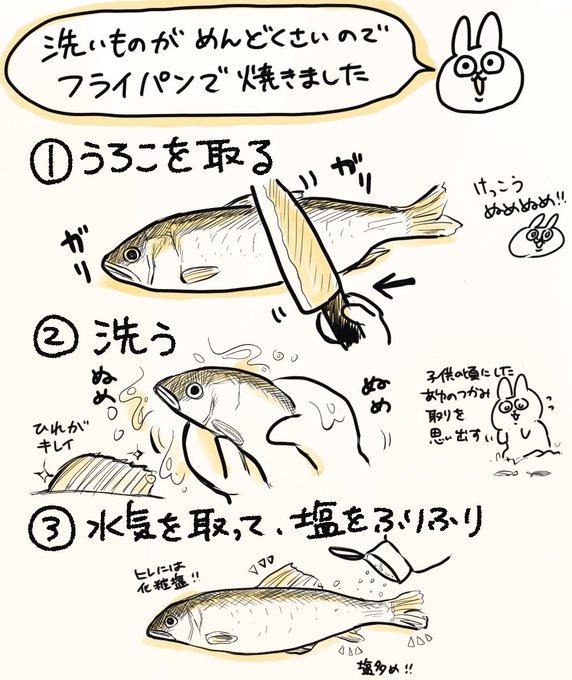 洗いものが めんどくさいので
フライパンで 焼きました
①うろこを取る
ガリ
ガリ
けっこう
ぬめぬめ!!
② 洗う
ぬめ
ぬめ
ひれが
キレイ
子供の頃にした
あゆのつかみ
取りを
思い出すぃ
③ 水気を取って、塩をふりふり
ヒレには
化粧塩!!
塩多め!!